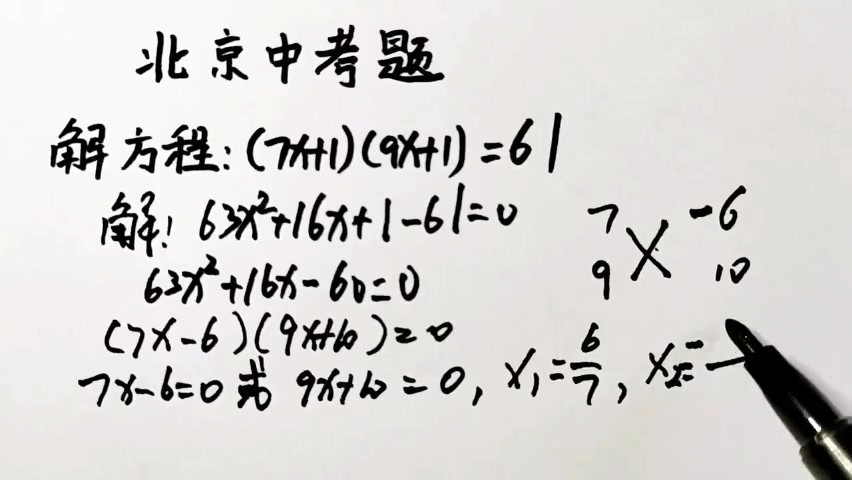 北京中考题
解方程:(7x+1)(9x+1)=61
解:63x²+16x+1-61=0
63x²+16x-60=0
(7x-6)(9x+10)=0
7x-6=0 或 9x+10=0, x₁=6/7, x₂=-
7 -6
9 10